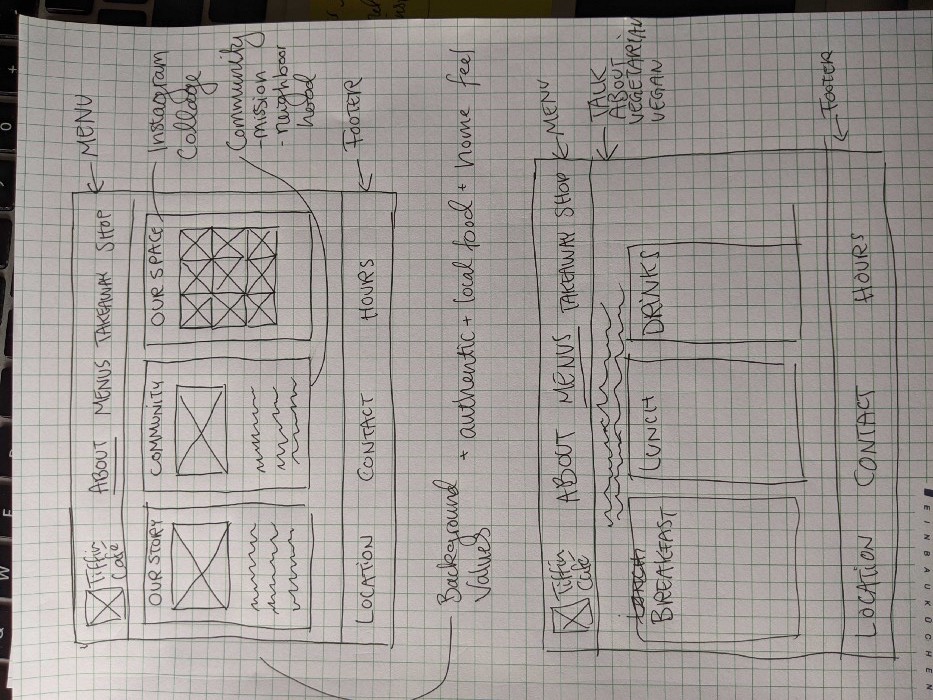 ← MENU
Tiffin
Cafe
ABOUT MENUS TAKEAWAY SHOP
OUR STORY
COMMUNITY
OUR SPACE
Instagram
Collage
Community
- mission
- neighbor
hood
LOCATION CONTACT HOURS
← FOOTER
Background
Values
+ authentic + local food + home feel
← MENU
Tiffin
Cafe
ABOUT MENUS TAKEAWAY SHOP
← TALK
ABOUT
VEGETARIAN
VEGAN
LUNCH
BREAKFAST
LUNCH
DRINKS
LOCATION CONTACT HOURS
← FOOTER
EINBAUKÜCHEN